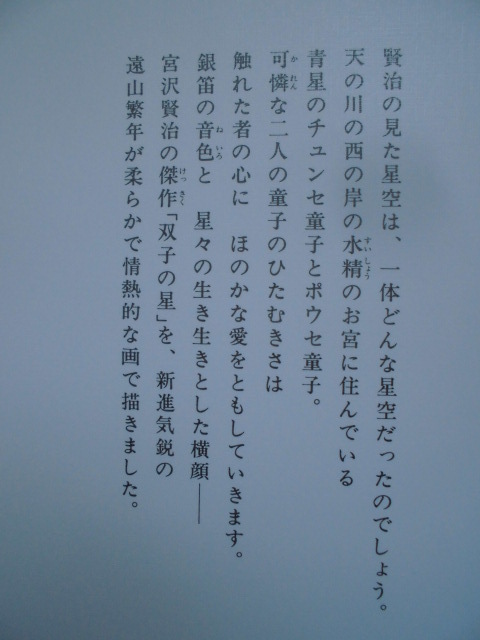 賢治の見た星空は、一体どんな星空だったのでしょう。
天の川の西の岸の水精のお宮に住んでいる
青星のチュンセ童子とポウセ童子。
可憐な二人の童子のひたむきさは
触れた者の心に　ほのかな愛をともしていきます。
銀笛の音色と　星々の生き生きとした横顔――
宮沢賢治の傑作「双子の星」を、新進気鋭の
遠山繁年が柔らかで情熱的な画で描きました。